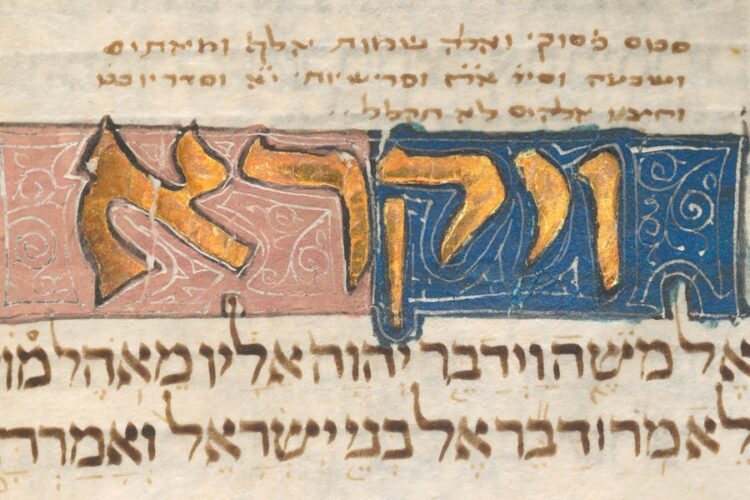 סכום פסוקי ואלה שמות אלף ומאתים
ותשעה וסי' ופרשיות' י'א וסדריו כט
וחציו אלהים לא תקלל
ויקרא
אל משה וידבר יהוה אליו מאהל מו
לאמר דבר אל בני ישראל ואמרת